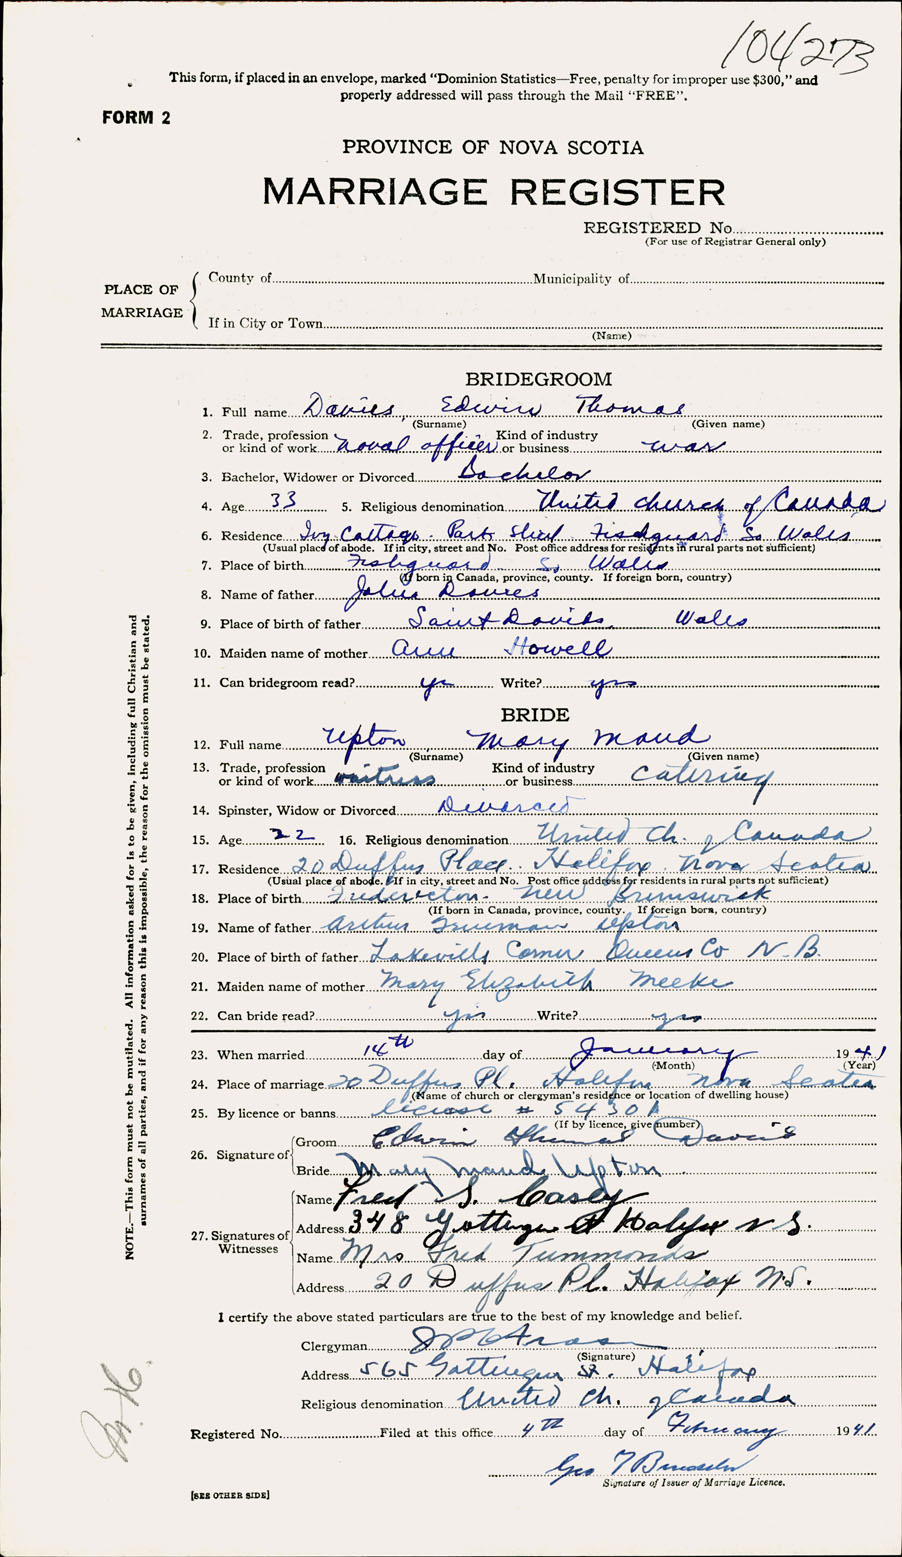 104273
This form, if placed in an envelope, marked "Dominion Statistics—Free, penalty for improper use $300," and
properly addressed will pass through the Mail "FREE".
FORM 2
PROVINCE OF NOVA SCOTIA
MARRIAGE REGISTER
REGISTERED No.
(For use of Registrar General only)
PLACE OF MARRIAGE
County of Municipality of
If in City or Town
(Name)
BRIDEGROOM
1. Full name Davies, Edwin Thomas
(Surname) (Given name)
2. Trade, profession or kind of work naval officer Kind of industry or business war
3. Bachelor, Widower or Divorced Bachelor
4. Age 33 5. Religious denomination United church of Canada
6. Residence Ivy Cottage. Park Street Fishguard So Wales
(Usual place of abode. If in city, street and No. Post office address for residents in rural parts not sufficient)
7. Place of birth Fishguard So Wales
(If born in Canada, province, county. If foreign born, country)
8. Name of father John Davies
9. Place of birth of father Saint Davids, Wales
10. Maiden name of mother Ann Howell
11. Can bridegroom read? yes Write? yes
BRIDE
12. Full name Upton Mary Maud
(Surname) (Given name)
13. Trade, profession or kind of work waitress Kind of industry or business catering
14. Spinster, Widow or Divorced Divorced
15. Age 22 16. Religious denomination United Ch. of Canada
17. Residence 20 Duffus Place. Halifax Nova Scotia
(Usual place of abode. If in city, street and No. Post office address for residents in rural parts not sufficient)
18. Place of birth Fredericton. New Brunswick
(If born in Canada, province, county. If foreign born, country)
19. Name of father Arthur Freeman Upton
20. Place of birth of father Lakeville Corner Queens Co N.B.
21. Maiden name of mother Mary Elizabeth Meeke
22. Can bride read? yes Write? yes
23. When married 14th day of January 1941
(Month) (Year)
24. Place of marriage 20 Duffus Pl. Halifax Nova Scotia
(Name of church or clergyman's residence or location of dwelling house)
25. By licence or banns license # 5430A
(If by licence, give number)
26. Signature of
Groom Edwin Thomas Davies
Bride Mary Maud Upton
27. Signatures of Witnesses
Name Fred S. Casey
Address 348 Gottingen St Halifax N S.
Name Mrs Fred Tummonds
Address 20 Duffus Pl. Halifax N.S.
I certify the above stated particulars are true to the best of my knowledge and belief.
Clergyman
(Signature)
Address 565 Gottingen St. Halifax
Religious denomination United Ch. of Canada
Registered No. Filed at this office 4th day of February 1941
Geo
Signature of Issuer of Marriage Licence.
[SEE OTHER SIDE]
NOTE.—This form must not be mutilated. All information asked for is to be given, including full Christian and
surnames of all parties, and if for any reason this is impossible, the reason for the omission must be stated.